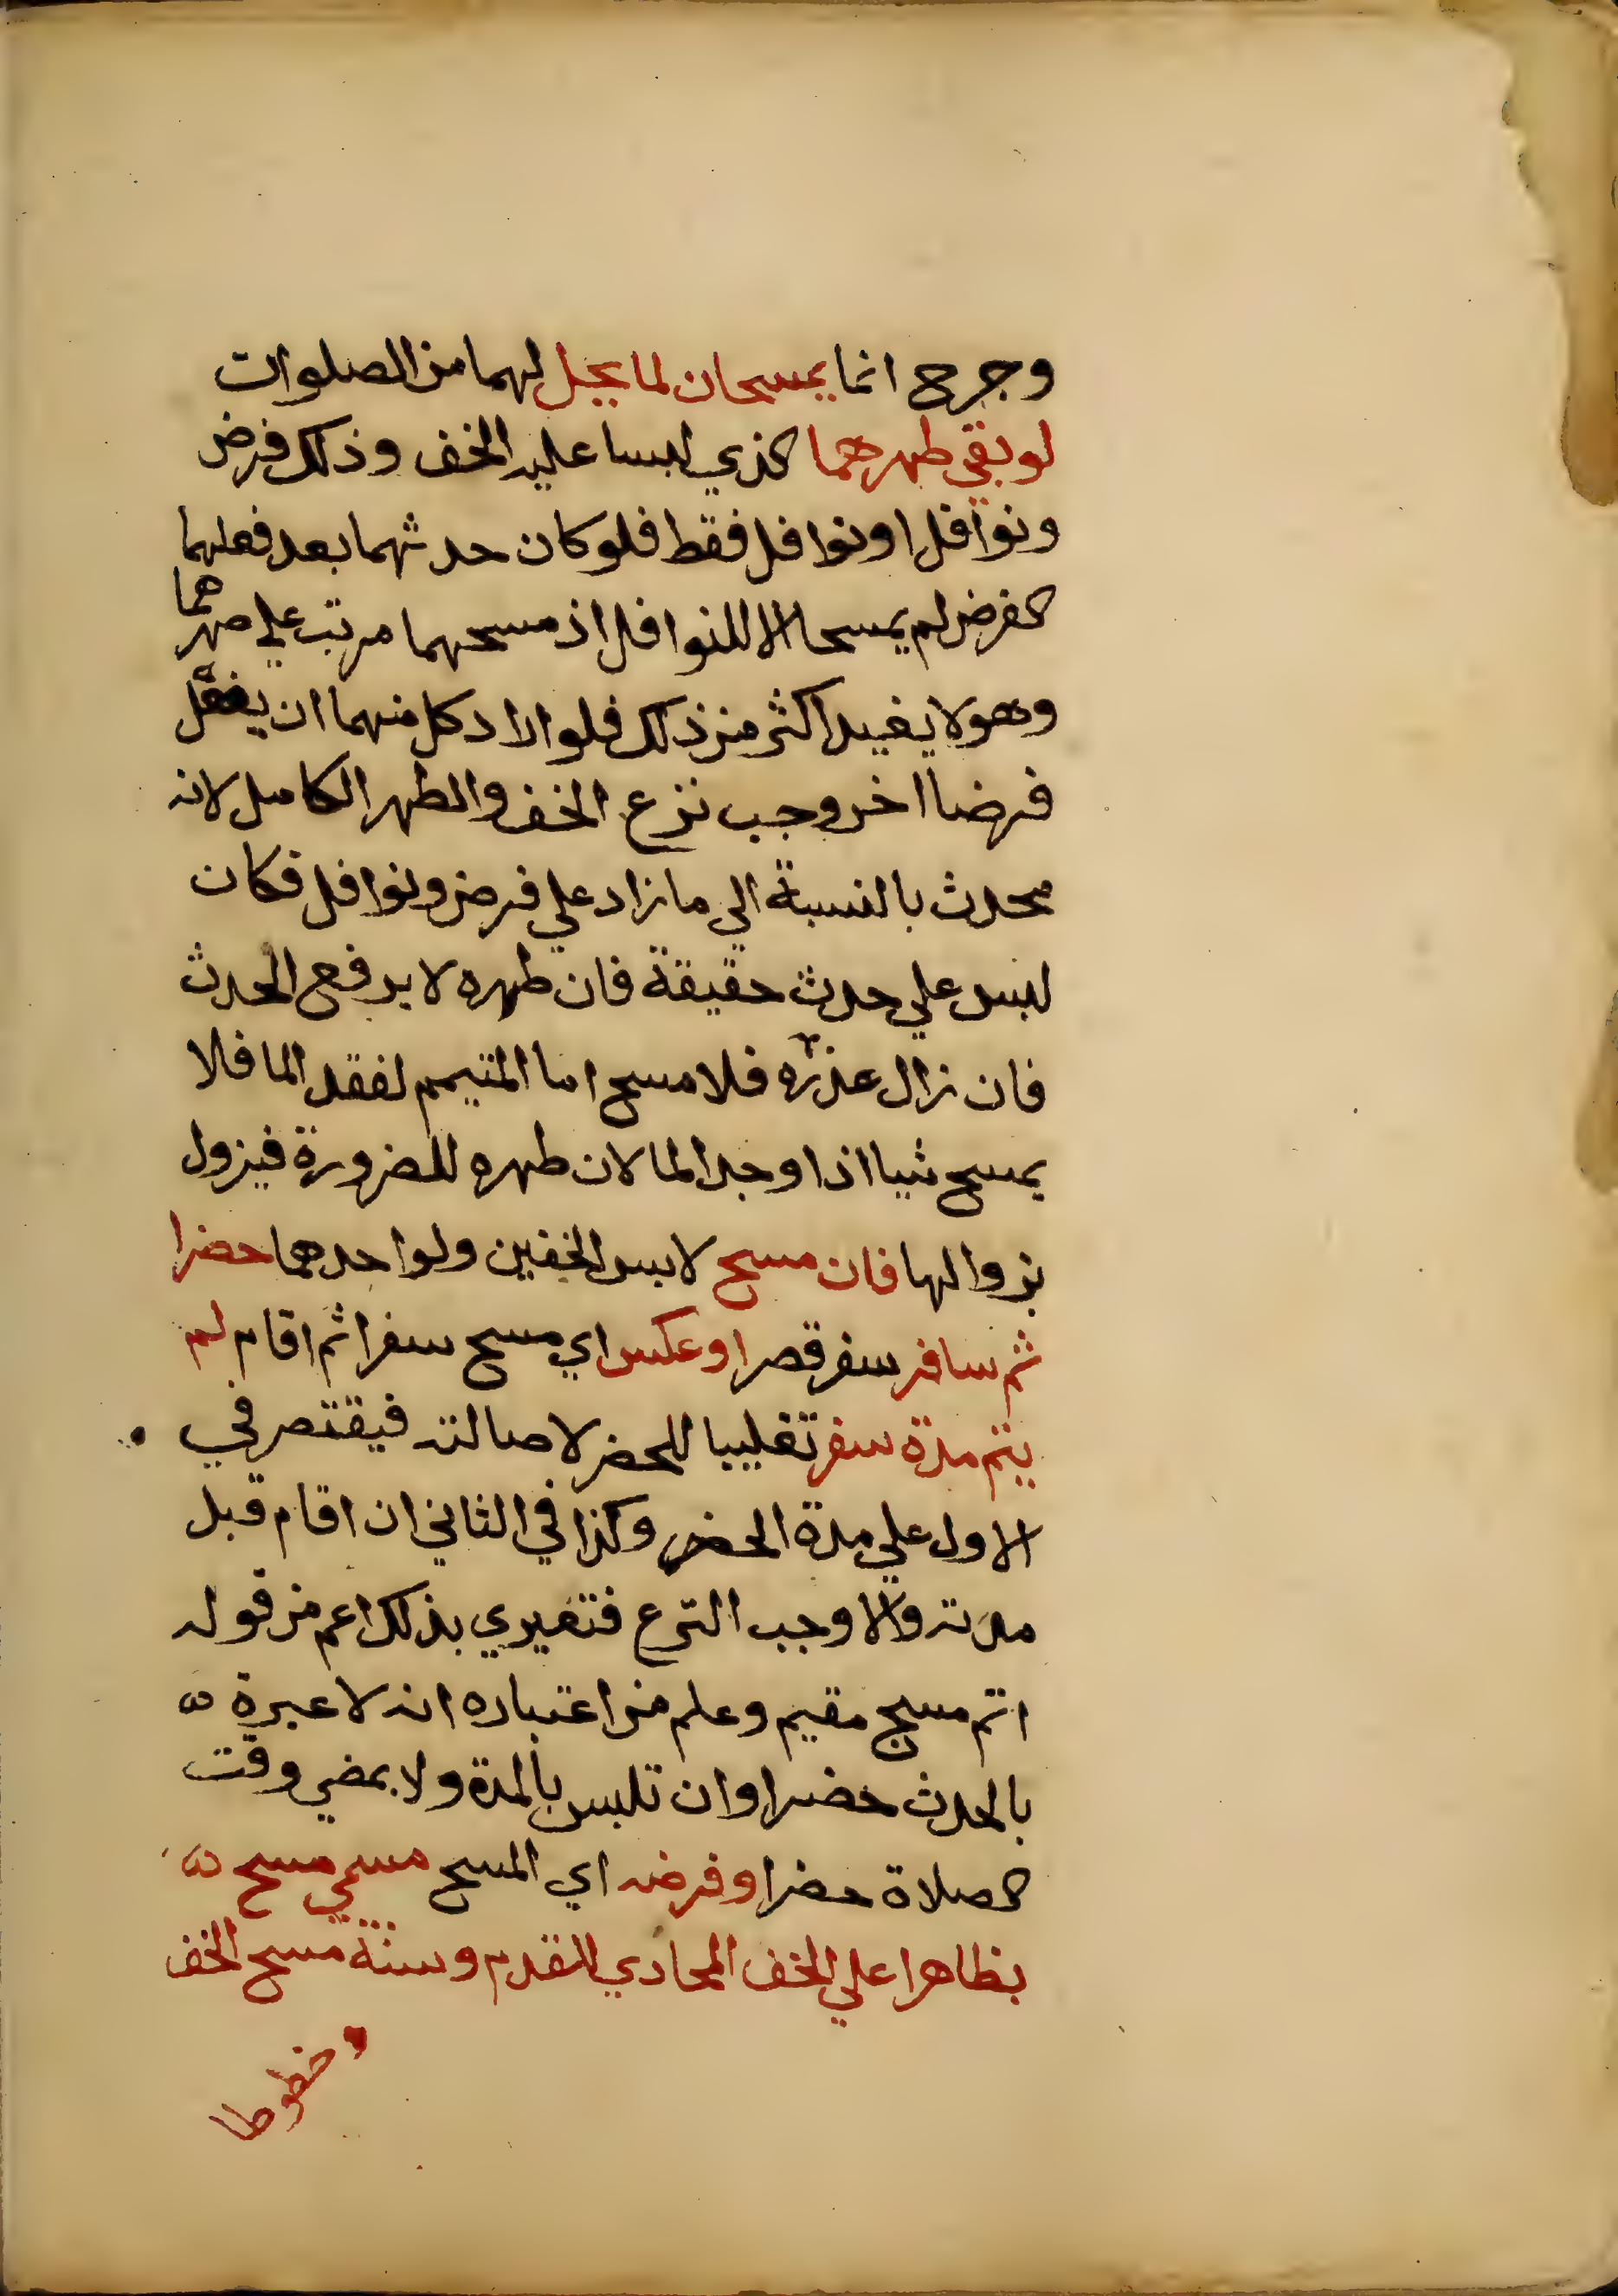 وجرح انما يمسحان لما يحل لهما من الصلوات
لو بقي طهرهما الذي لبسا عليه الخف وذلك فرض
ونوافل او نوافل فقط فلو كان حدثهما بعد فعلهما
الفرض لم يمسحا الا للنوافل اذ مسحهما مرتب علي طهرهما
وهو لا يفيد اكثر من ذلك فلو اراد كل منهما ان يفعل
فرضا اخر وجب نزع الخف والطهر الكامل لانه
محدث بالنسبة الي ما زاد علي فرض ونوافل فكان
لبس علي حدث حقيقة فان طهره لا يرفع الحدث
فان زال عذره فلا مسح اما المتيمم لفقد الما فلا
يمسح شيا اذا وجد الما لان طهره للضرورة فيزول
بزوالها فان مسح لابس الخفين ولو احدهما حضرا
ثم سافر سفر قصر او عكس اي مسح سفرا ثم اقام لم
يتم مدة سفر تغليبا للحضر لاصالته فيقتصر في
الاول علي مدة الحضر وكذا في الثاني ان اقام قبل
مدته والا وجب النزع فتعبيري بذلك اعم من قوله
اتم مسح مقيم وعلم من اعتباره انه لا عبرة
بالحدث حضرا وان تلبس بالمدة ولا بمضي وقت
الصلاة حضرا وفرضه اي المسح مسمي مسح
بظاهر اعلي الخف المحاذي للقدم وسنة مسح الخف
خطوطا